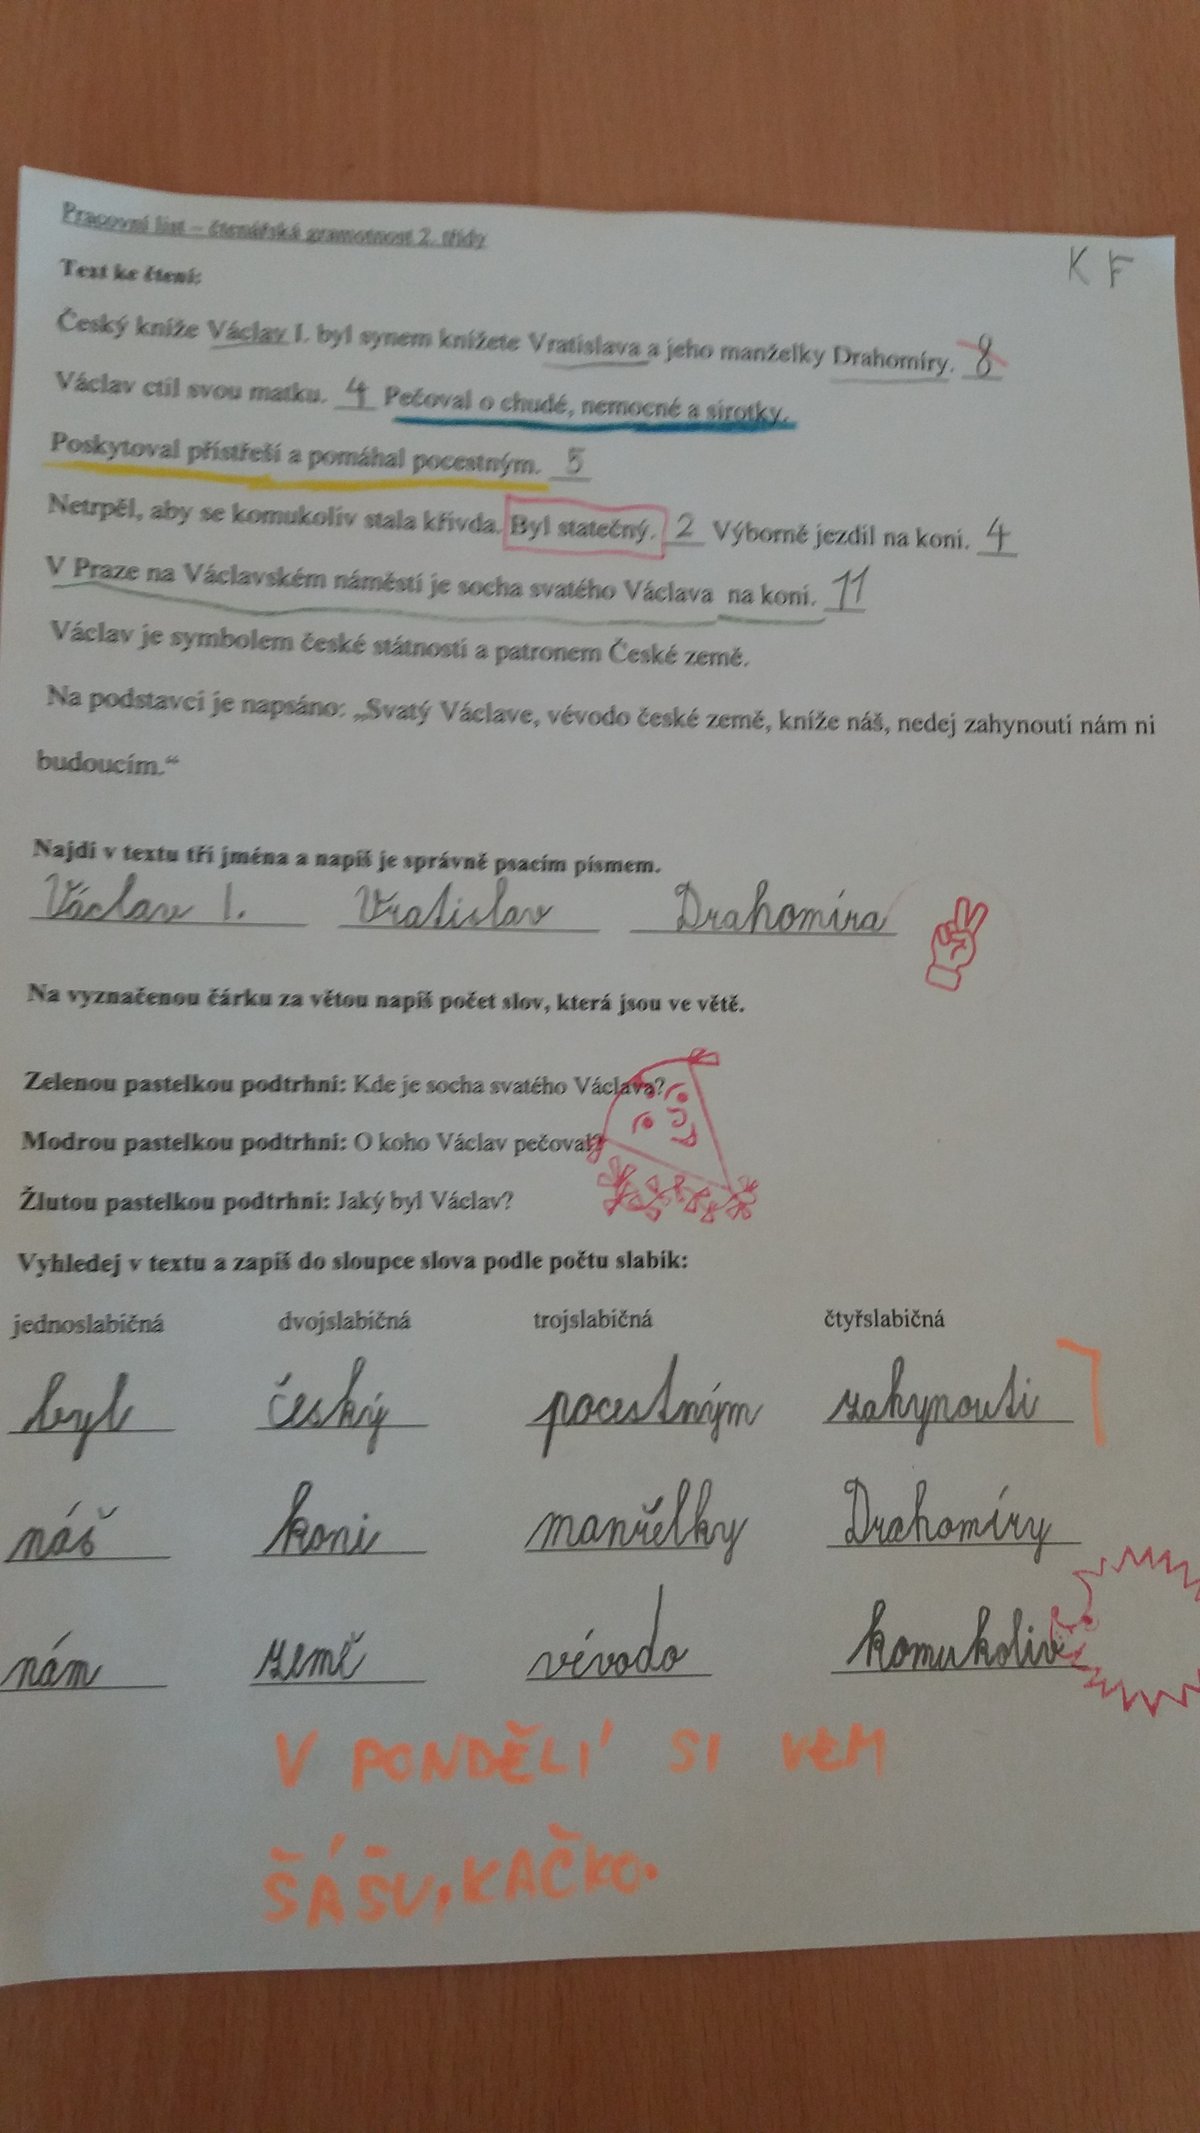 Pracovní list – čtenářská gramotnost 2. třídy
K F
Text ke čtení:
Český kníže Václav I. byl synem knížete Vratislava a jeho manželky Drahomíry. 8
Václav ctil svou matku. 4 Pečoval o chudé, nemocné a sirotky.
Poskytoval přístřeší a pomáhal pocestným. 5
Netrpěl, aby se komukoliv stala křivda. Byl statečný. 2 Výborně jezdil na koni. 4
V Praze na Václavském náměstí je socha svatého Václava na koni. 11
Václav je symbolem české státnosti a patronem České země.
Na podstavci je napsáno: „Svatý Václave, vévodo české země, kníže náš, nedej zahynouti nám ni
budoucím.“
Najdi v textu tři jména a napiš je správně psacím písmem.
Václav I. Vratislav Drahomíra
Na vyznačenou čárku za větou napiš počet slov, která jsou ve větě.
Zelenou pastelkou podtrhni: Kde je socha svatého Václava?
Modrou pastelkou podtrhni: O koho Václav pečoval?
Žlutou pastelkou podtrhni: Jaký byl Václav?
Vyhledej v textu a zapiš do sloupce slova podle počtu slabik:
jednoslabičná dvojslabičná trojslabičná čtyřslabičná
byl český pocestným zahynouti
náš koni manželky Drahomíry
nám země vévodo komukoliv
V PONDĚLÍ SI VEM
ŠÁŠU, KAČKO.